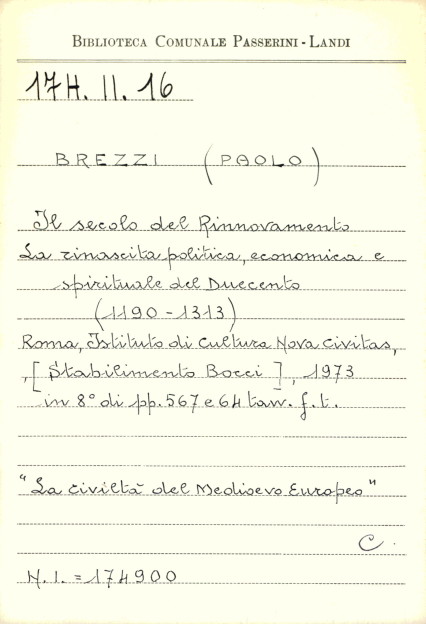 BIBLIOTECA COMUNALE PASSERINI - LANDI
17H. II. 16
BREZZI (PAOLO)
Il secolo del Rinnovamento
La rinascita politica, economica e
spirituale del Duecento
(1190 - 1313)
Roma, Istituto di Cultura Nova Civitas,
, [Stabilimento Bocci], 1973
in 8° di pp. 567 e 64 tav. f. t.
"La civiltà del Medioevo Europeo"
C.
N. I. = 174900